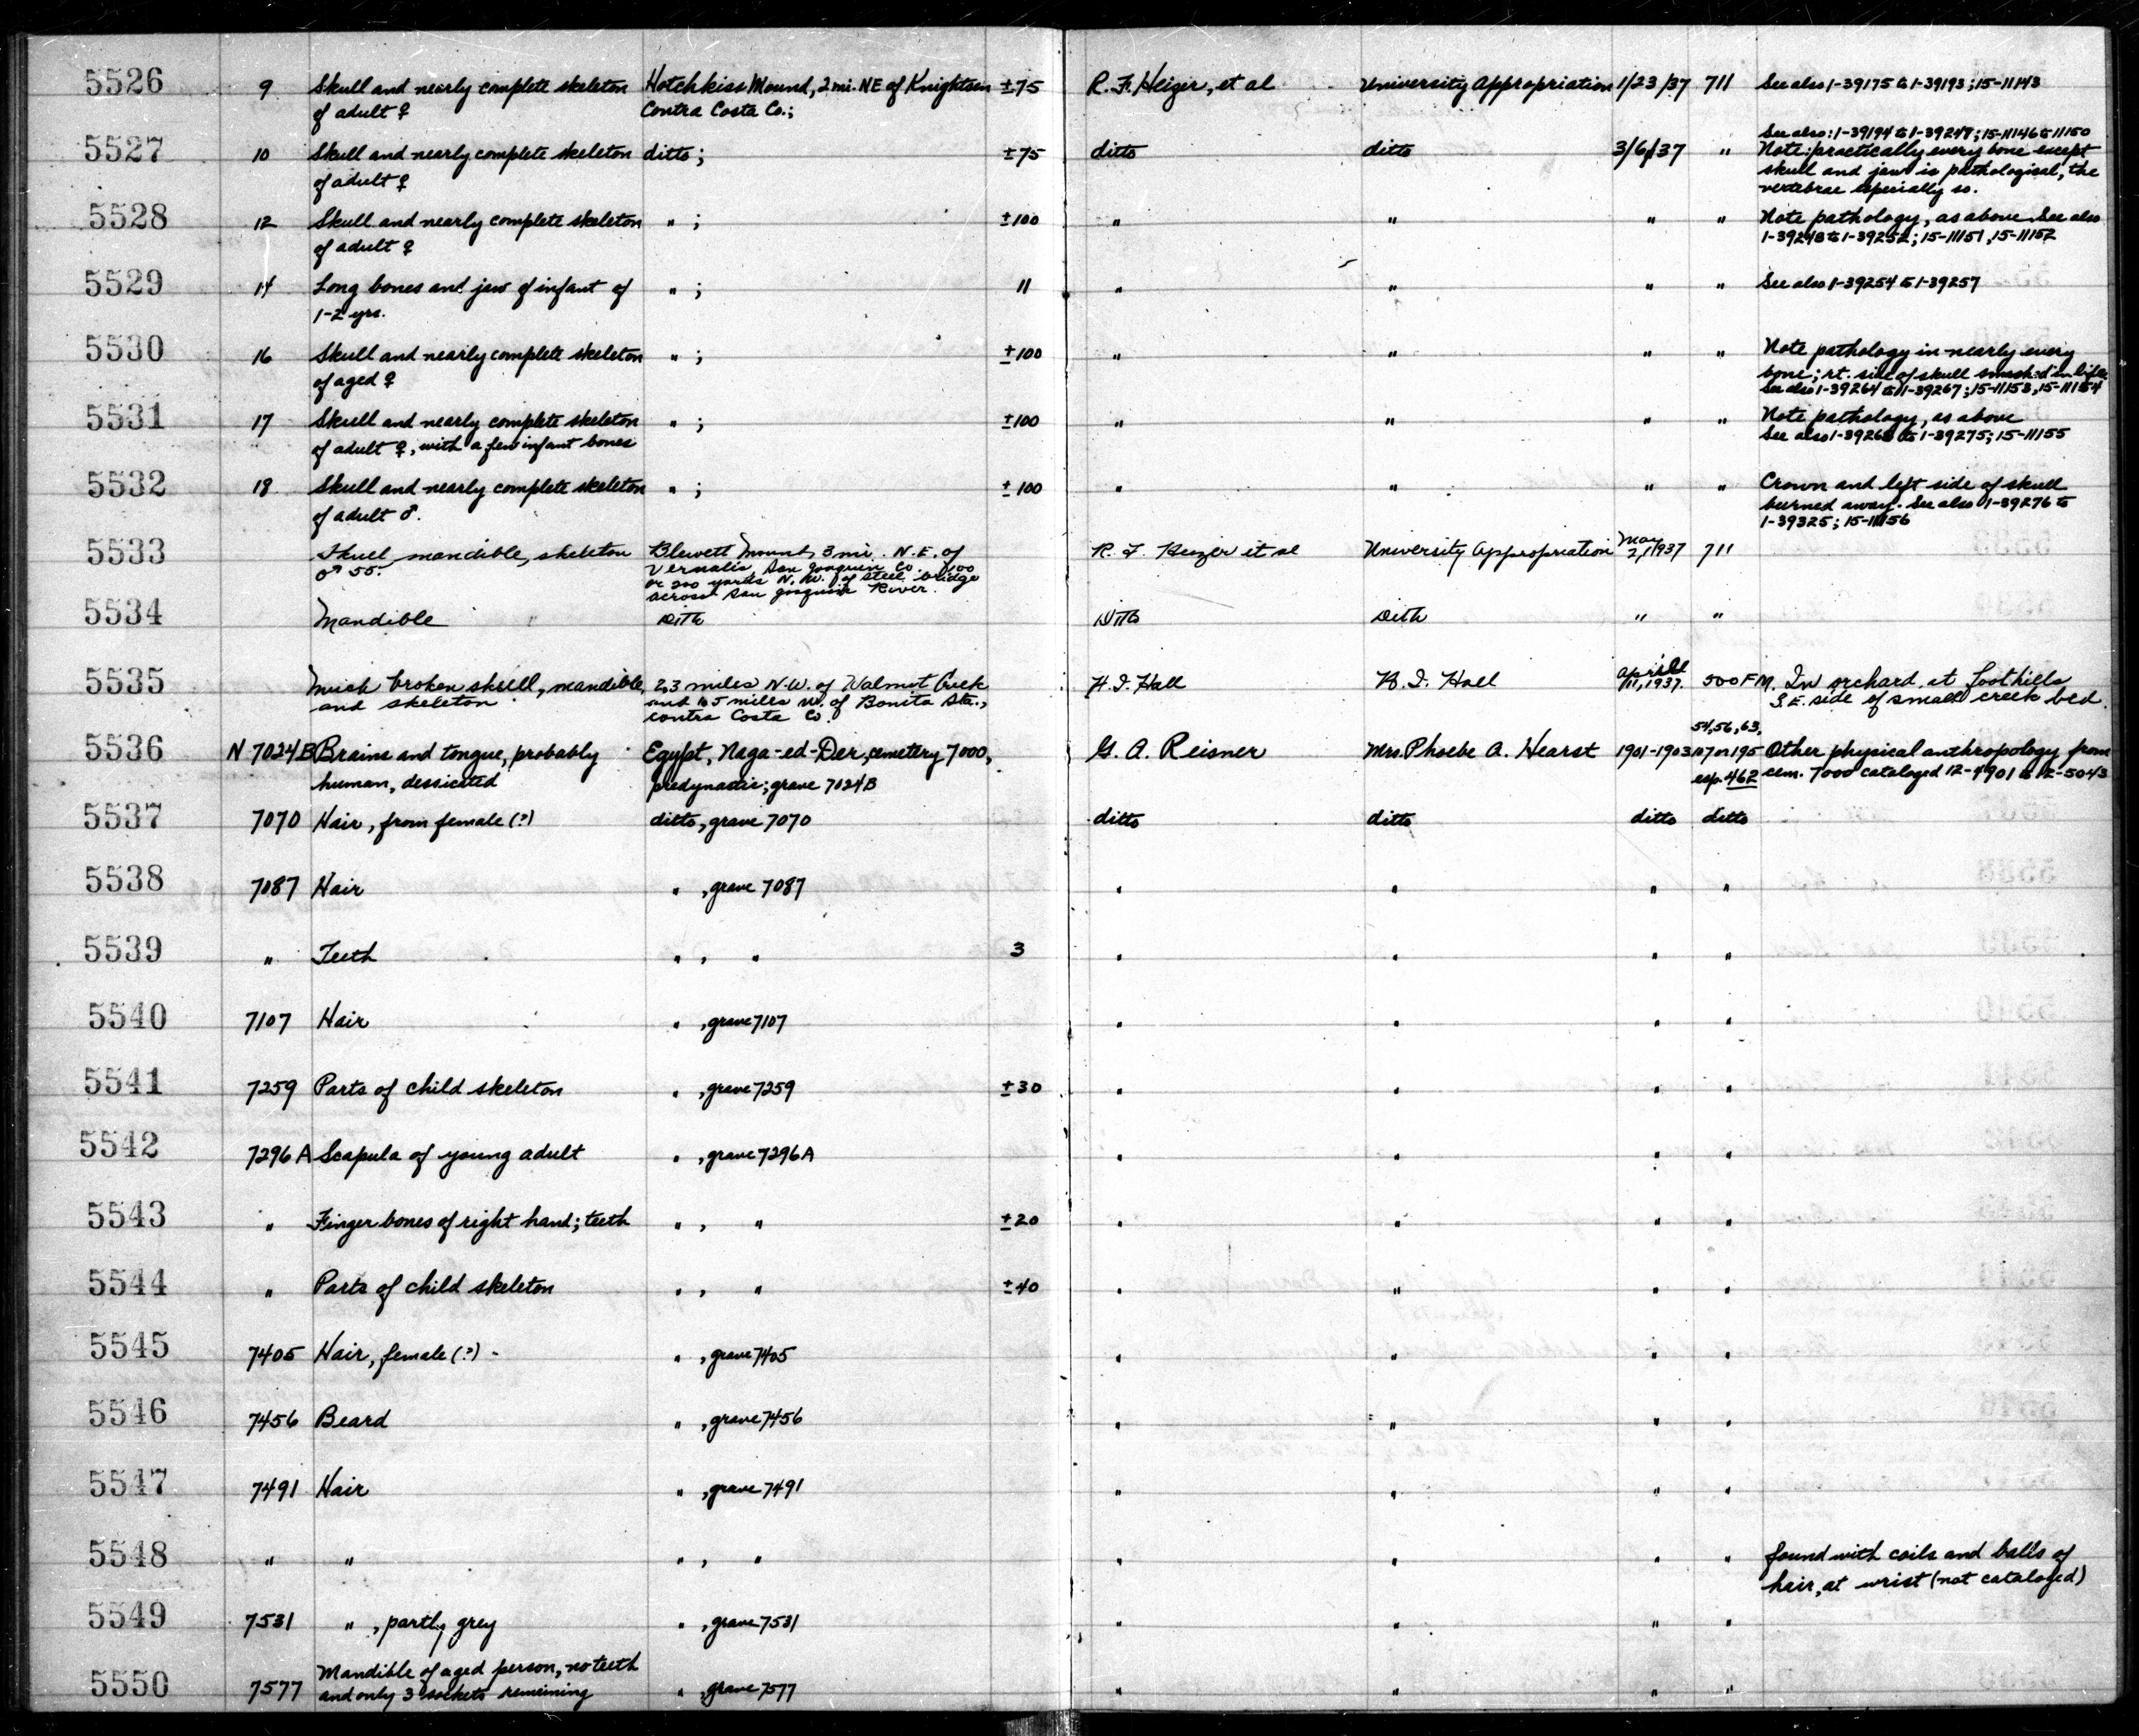 5526 9 Skull and nearly complete skeleton Hotchkiss Mound, 2 mi. NE of Knightsen ±75 R. F. Heizer, et al University Appropriation 1/23/37 711 See also 1-39175 to 1-39193; 15-11143
of adult ♀ Contra Costa Co.;
See also: 1-39194 to 1-39247; 15-11146 to 11150
5527 10 Skull and nearly complete skeleton ditto; ±75 ditto ditto 3/6/37 " Note: practically every bone except
of adult ♀ skull and jaw is pathological, the
vertebrae especially so.
5528 12 Skull and nearly complete skeleton " ; ±100 " " " " Note pathology, as above. See also
of adult ♀ 1-39248 to 1-39252; 15-11151, 15-11152
5529 14 Long bones and jaw of infant of " ; 11 " " " " See also 1-39254 to 1-39257
1-2 yrs.
5530 16 Skull and nearly complete skeleton " ; ±100 " " " " Note pathology in nearly every
of aged ♀ bone; rt. side of skull smashed in life.
See also 1-39264 to 1-39267; 15-11153, 15-11154
5531 17 Skull and nearly complete skeleton " ; ±100 " " " " Note pathology, as above
of adult ♀, with a few infant bones See also 1-39268 to 1-39275; 15-11155
5532 18 Skull and nearly complete skeleton " ; ±100 " " " " Crown and left side of skull
of adult ♂. burned away. See also 1-39276 to
1-39325; 15-11156
5533 Skull, mandible, skeleton Blewett Mound, 3 mi. N.E. of R. F. Heizer et al University Appropriation May 2, 1937 711
♂ 55. Vernalis, San Joaquin Co. 100
or 200 yards N.W. of steel bridge
across San Joaquin River.
5534 Mandible Ditto Ditto Ditto " "
5535 Much broken skull, mandible, 2.3 miles N.W. of Walnut Creek H. I. Hall H. I. Hall April 11, 1937. 500 FM. In orchard at foothills
and skeleton and 1.5 miles W. of Bonita Sta., S.E. side of small creek bed.
Contra Costa Co.
54, 56, 63,
5536 N 7024B Brains and tongue, probably Egypt, Naga-ed-Der, cemetery 7000, G. A. Reisner Mrs. Phoebe A. Hearst 1901-1903 107 or 195 Other physical anthropology from
human, dessicated predynastic; grave 7024B esp. 462 cem. 7000 cataloged 12-4901 to 12-5043
5537 7070 Hair, from female (?) ditto, grave 7070 ditto ditto ditto ditto
5538 7087 Hair " , grave 7087 " " " "
5539 " Teeth " , " 3 " " " "
5540 7107 Hair " , grave 7107 " " " "
5541 7259 Parts of child skeleton " , grave 7259 ±30 " " " "
5542 7296 A Scapula of young adult " , grave 7296A " " " "
5543 " Finger bones of right hand; teeth " , " ±20 " " " "
5544 " Parts of child skeleton " , " ±40 " " " "
5545 7405 Hair, female (?) - " , grave 7405 " " " "
5546 7456 Beard " , grave 7456 " " " "
5547 7491 Hair " , grave 7491 " " " "
5548 " " " , " " " " " found with coils and balls of
hair, at wrist (not cataloged)
5549 7531 " , partly grey " , grave 7531 " " " "
5550 7577 Mandible of aged person, no teeth " , grave 7577 " " " "
and only 3 sockets remaining